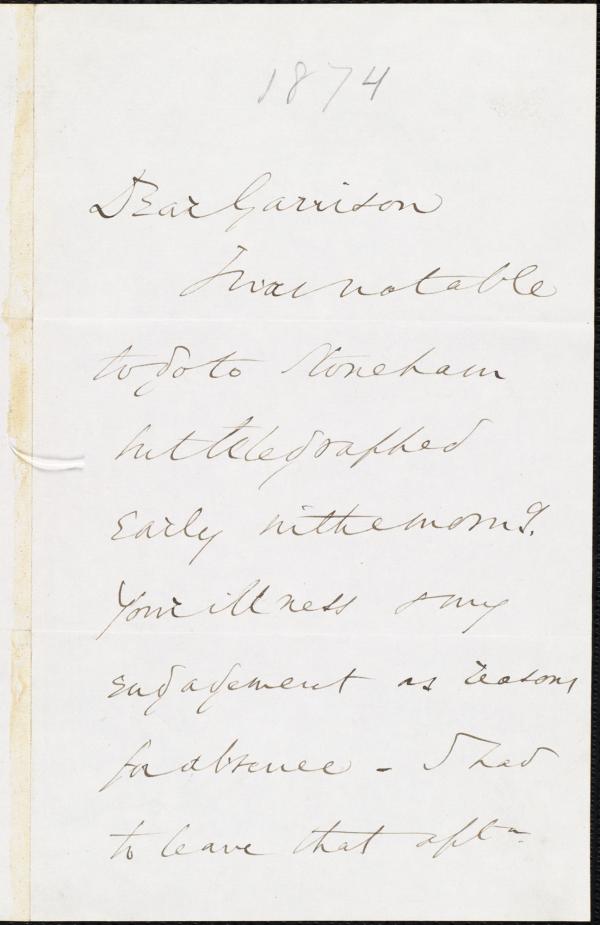 1874
Dear Garrison
I was not able
to go to Stoneham
but telegraphed
Early in the morng.
Your illness & my
engagement as reasons
for absence - I had
to leave that aftn